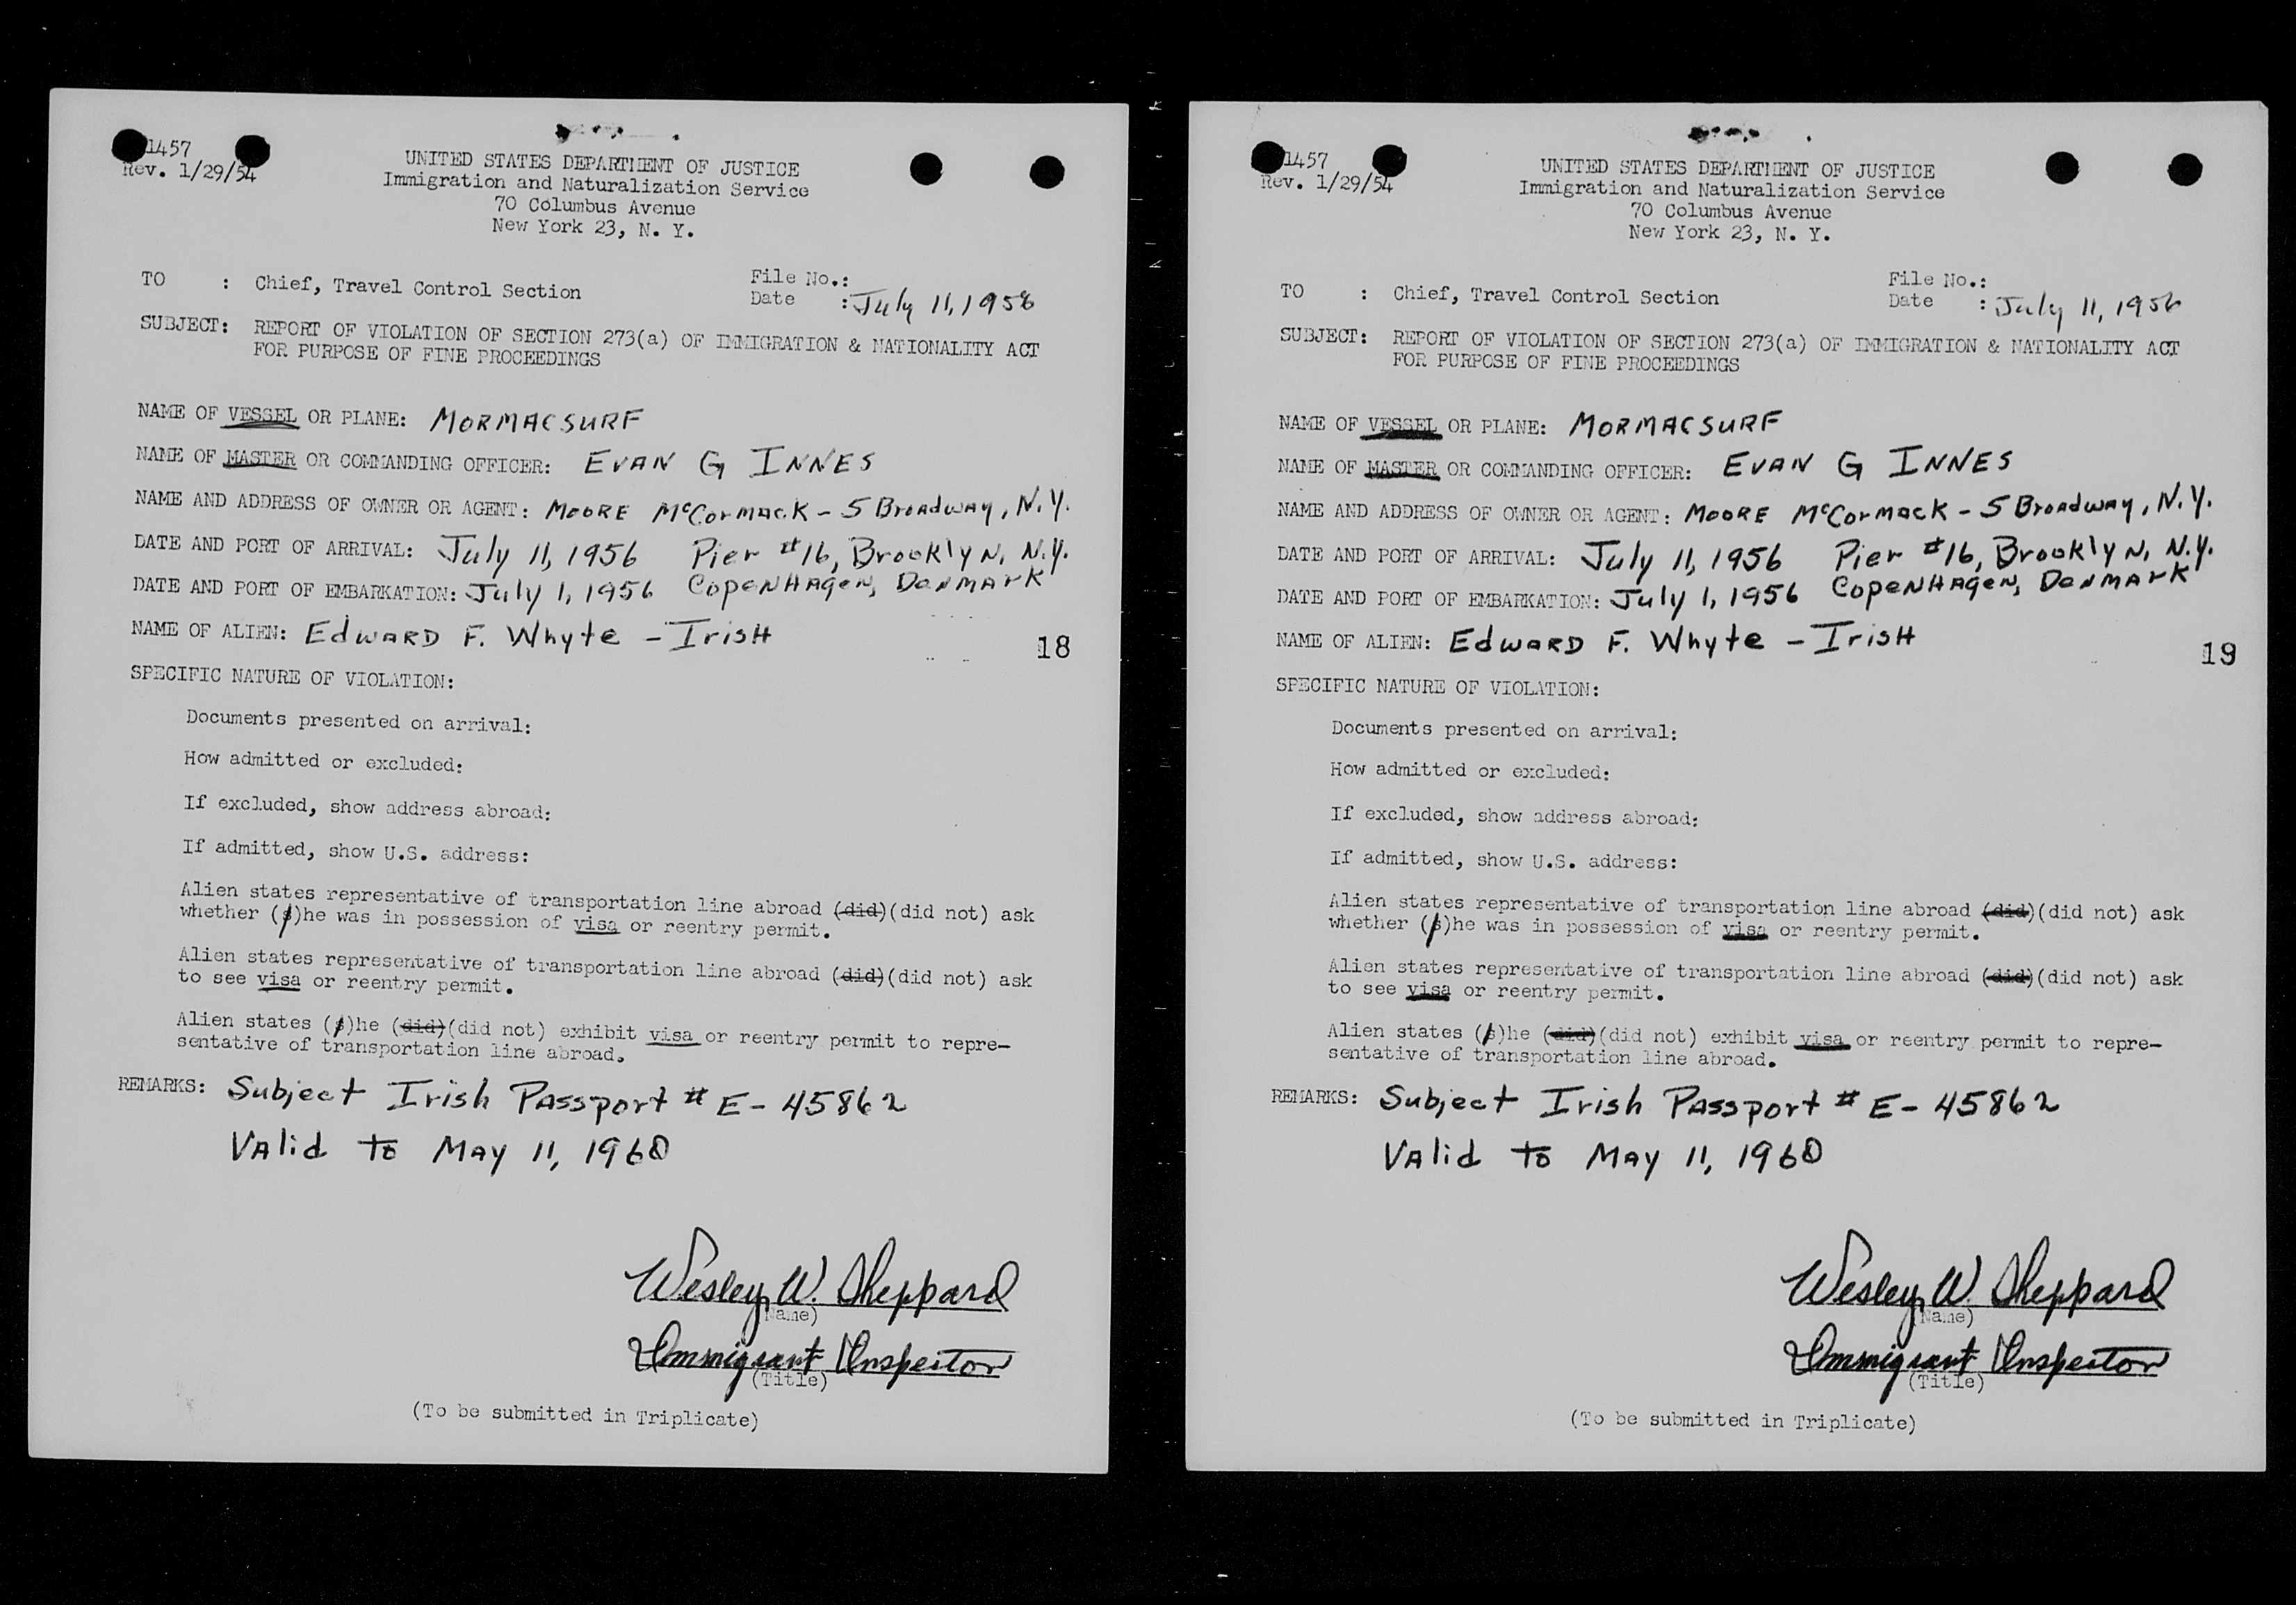 1457
Rev. 1/29/54
UNITED STATES DEPARTMENT OF JUSTICE
Immigration and Naturalization Service
70 Columbus Avenue
New York 23, N. Y.
File No.:
TO : Chief, Travel Control Section
Date : July 11, 1956
SUBJECT: REPORT OF VIOLATION OF SECTION 273(a) OF IMMIGRATION & NATIONALITY ACT
FOR PURPOSE OF FINE PROCEEDINGS
NAME OF VESSEL OR PLANE: MORMACSURF
NAME OF MASTER OR COMMANDING OFFICER: EVAN G INNES
NAME AND ADDRESS OF OWNER OR AGENT: MOORE McCormack - 5 Broadway, N.Y.
DATE AND PORT OF ARRIVAL: July 11, 1956 Pier #16, Brooklyn, N.Y.
DATE AND PORT OF EMBARKATION: July 1, 1956 Copenhagen, Denmark
NAME OF ALIEN: Edward F. Whyte - Irish
18
SPECIFIC NATURE OF VIOLATION:
Documents presented on arrival:
How admitted or excluded:
If excluded, show address abroad:
If admitted, show U.S. address:
Alien states representative of transportation line abroad (did)(did not) ask
whether (s)he was in possession of visa or reentry permit.
Alien states representative of transportation line abroad (did)(did not) ask
to see visa or reentry permit.
Alien states (s)he (did)(did not) exhibit visa or reentry permit to repre-
sentative of transportation line abroad.
REMARKS: Subject Irish Passport # E-45862
Valid to May 11, 1960
Wesley W. Sheppard
(Name)
Immigrant Inspector
(Title)
(To be submitted in Triplicate)
1457
Rev. 1/29/54
UNITED STATES DEPARTMENT OF JUSTICE
Immigration and Naturalization Service
70 Columbus Avenue
New York 23, N. Y.
File No.:
TO : Chief, Travel Control Section
Date : July 11, 1956
SUBJECT: REPORT OF VIOLATION OF SECTION 273(a) OF IMMIGRATION & NATIONALITY ACT
FOR PURPOSE OF FINE PROCEEDINGS
NAME OF VESSEL OR PLANE: MORMACSURF
NAME OF MASTER OR COMMANDING OFFICER: EVAN G INNES
NAME AND ADDRESS OF OWNER OR AGENT: MOORE McCormack - 5 Broadway, N.Y.
DATE AND PORT OF ARRIVAL: July 11, 1956 Pier #16, Brooklyn, N.Y.
DATE AND PORT OF EMBARKATION: July 1, 1956 Copenhagen, Denmark
NAME OF ALIEN: Edward F. Whyte - Irish
19
SPECIFIC NATURE OF VIOLATION:
Documents presented on arrival:
How admitted or excluded:
If excluded, show address abroad:
If admitted, show U.S. address:
Alien states representative of transportation line abroad (did)(did not) ask
whether (s)he was in possession of visa or reentry permit.
Alien states representative of transportation line abroad (did)(did not) ask
to see visa or reentry permit.
Alien states (s)he (did)(did not) exhibit visa or reentry permit to repre-
sentative of transportation line abroad.
REMARKS: Subject Irish Passport # E-45862
Valid to May 11, 1960
Wesley W. Sheppard
(Name)
Immigrant Inspector
(Title)
(To be submitted in Triplicate)